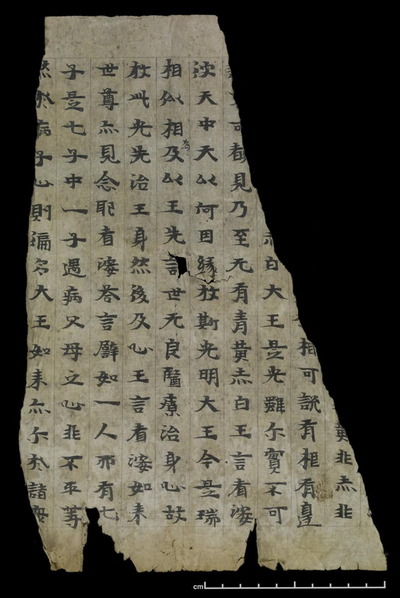 黃非赤非
相可說有根有邊
赤白大王是光雖尒實不可
可覩見乃至无有青黃赤白王言耆婆
彼天中天以何因緣放斯光明大王今是瑞
相似相為及以王先言世无良醫療治身心故
放此光先治王身然後及心王言耆婆如來
世尊亦見念耶耆婆答言譬如一人而有七
子是七子中一子遇病父母之心非不平等
然於病子心則偏多大王如來亦尒於諸眾
cm